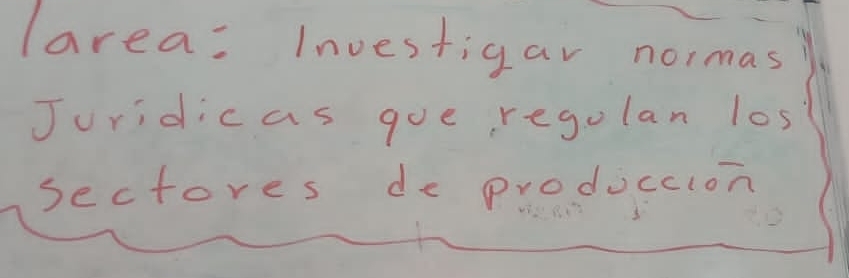 Tarea: Investigar normas
Juridicas que regulan los
sectores de producción